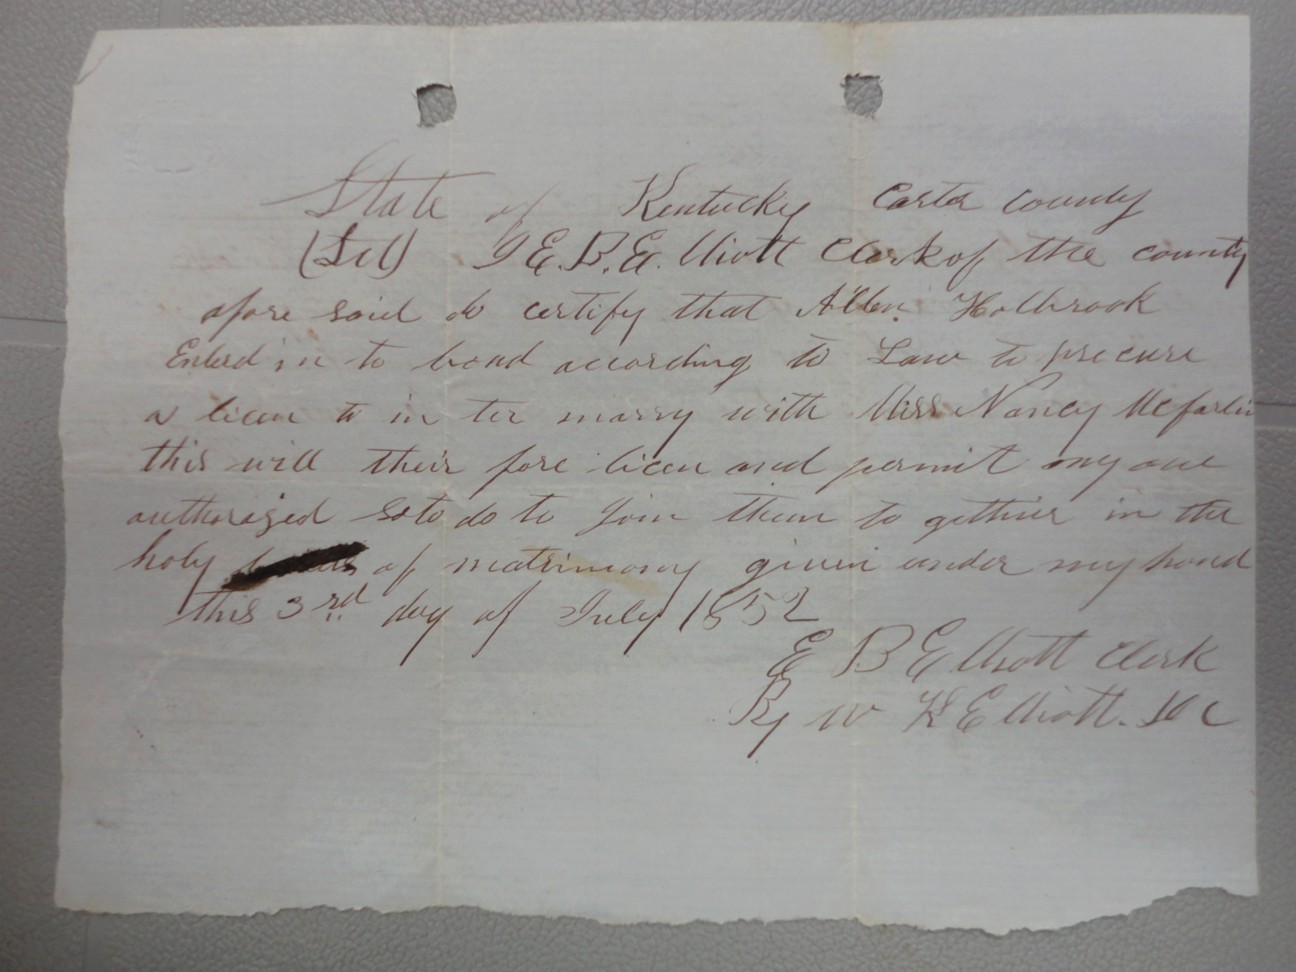 State of Kentucky Carter County
(Sct) I E. B. Elliott Clerk of the county
afore said do certify that Allen Holbrook
Enterd in to bond according to Law to precure
a licen to in ter marry with Miss Nancy Mcfarlin
this will their fore licen and permit any one
authorized so to do to Join them to gether in the
holy of matrimony given under my hand
this 3rd day of July 1852
E B Elliott Clerk
By W H Elliott. DC